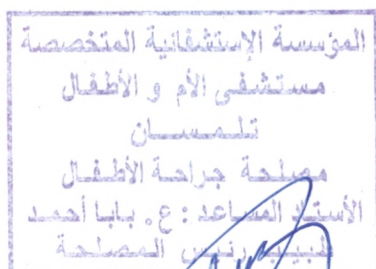 المؤسسة الإستشفائية المتخصصة
مستشفى الأم و الأطفال
تلمسان
مصلحة جراحة الأطفال
الأستاذ المساعد : ع . بابا أحمد
طبيب رئيس المصلحة